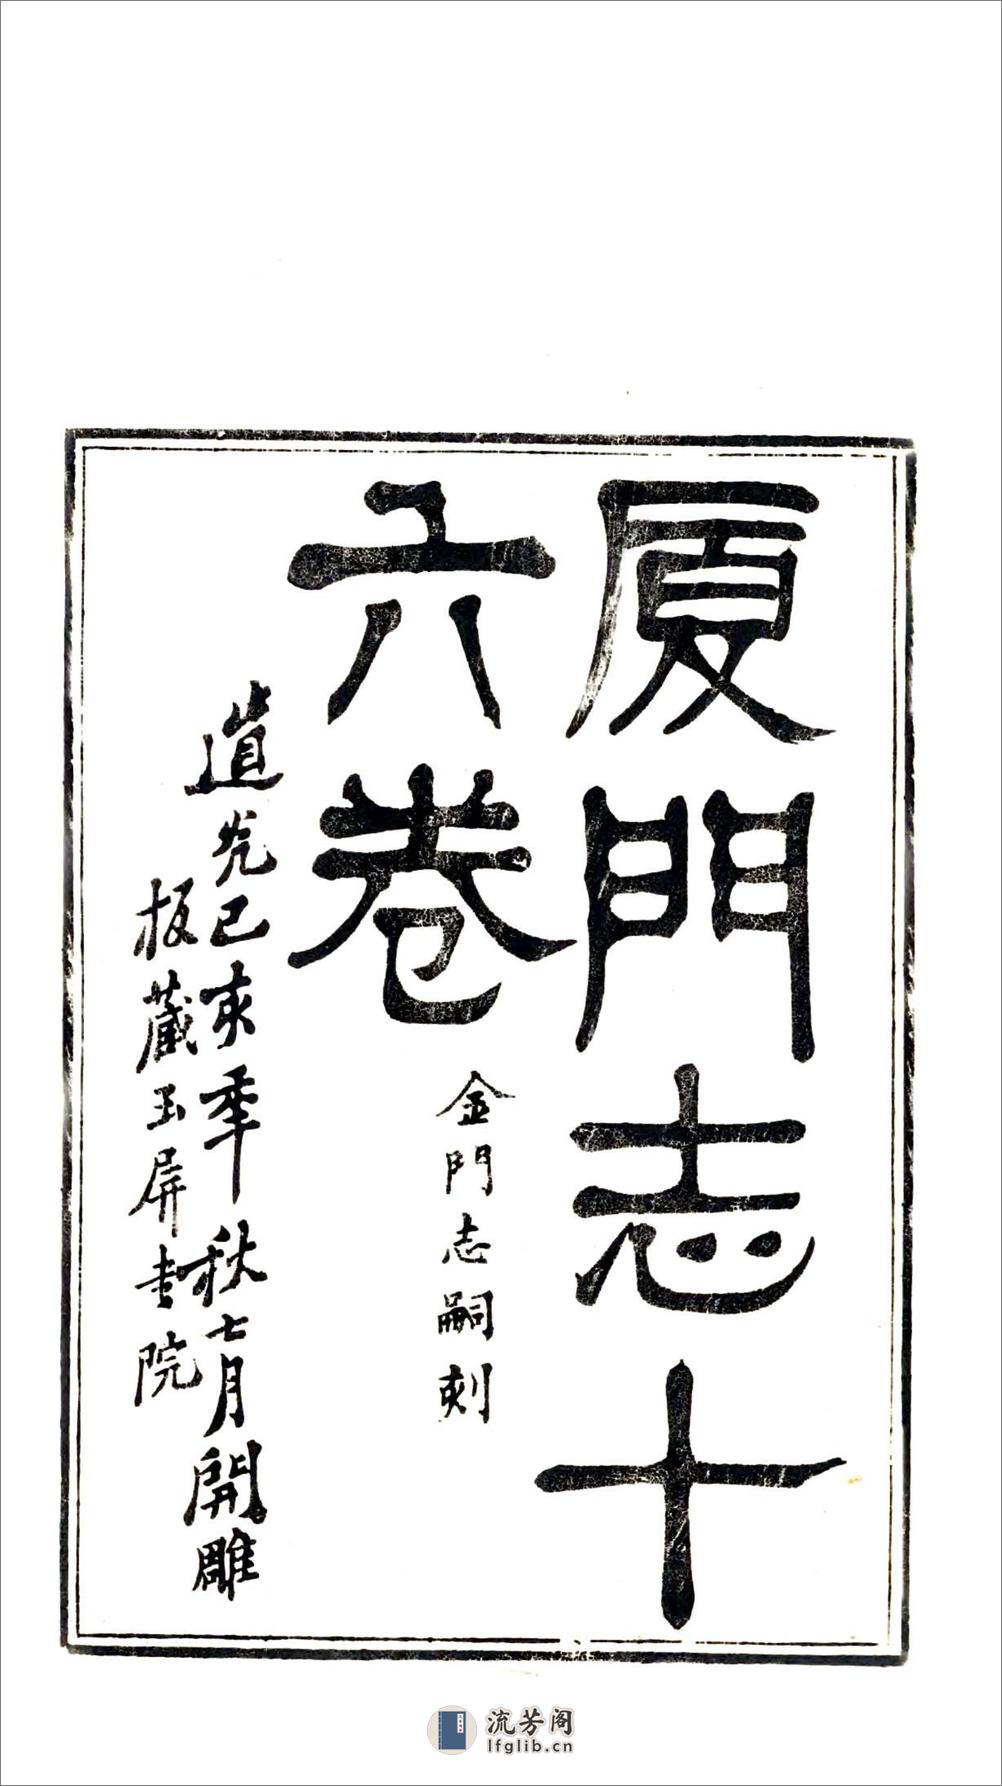 厦門志十
六卷
金門志嗣刻
道光己亥季秋七月開雕
板藏玉屏書院
流芳阁
lfglib.cn